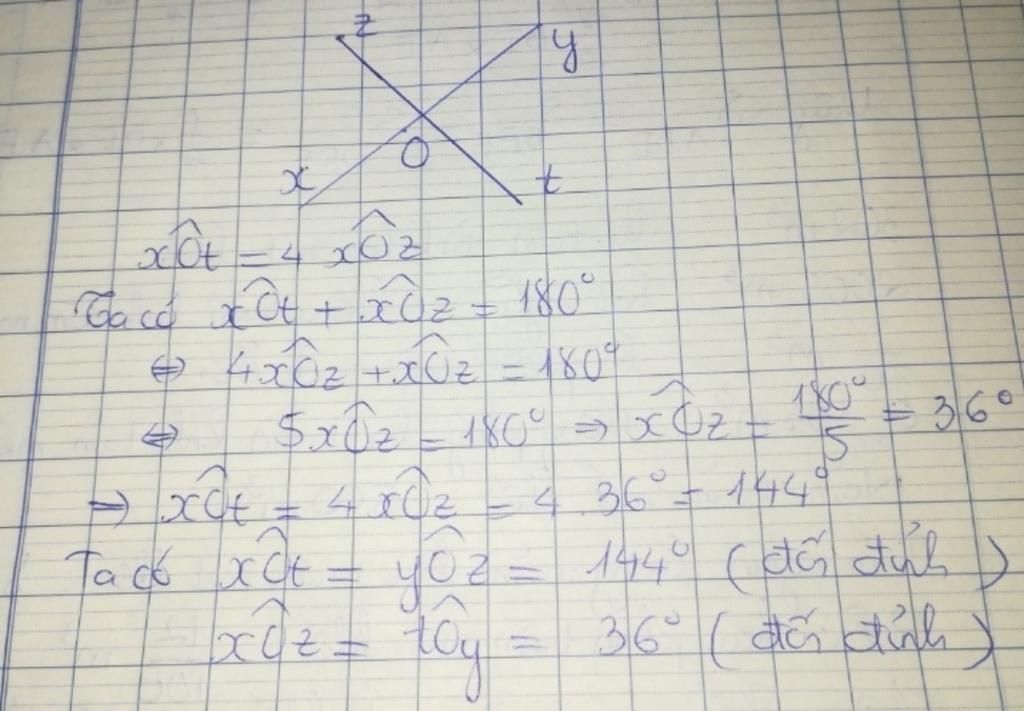 z
y
O
x t
xÔt = 4 xÔz
Ta có xÔt + xÔz = 180°
⇔ 4xÔz + xÔz = 180°
⇔ 5xÔz = 180° ⇒ xÔz = 180°/5 = 36°
⇒ xÔt = 4 xÔz = 4. 36° = 144°
Ta có xÔt = yÔz = 144° (đối đỉnh)
xÔz = tÔy = 36° (đối đỉnh)